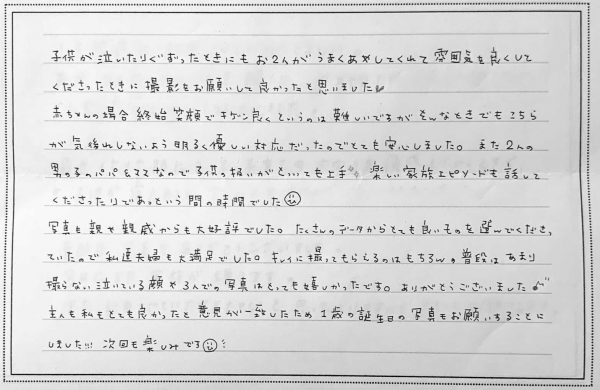 子供が泣いたりぐずったときにもお2人がうまくあやしてくれて雰囲気を良くして
くださったときに撮影をお願いして良かったと思いました
赤ちゃんの場合終始笑顔でキゲン良くというのは難しいですがそんなときでもこちら
が気後れしないよう明るく優しい対応だったのでとても安心しました。また2人の
男の子のパパ&ママなので子供の扱いがとっても上手 楽しい家族エピソードも話して
くださったりであっという間の時間でした
写真も親や親戚からも大好評でした。たくさんのデータからとても良いものを選んでくださっ
ていたので私達夫婦も大満足でした。キレイに撮ってもらえるのはもちろんの普段はあまり
撮らない泣いている顔や3人での写真はとっても嬉しかったです。ありがとうございました
主人も私もとても良かったと意見が一致したため1歳の誕生日の写真もお願いすることに
しました!!! 次回も楽しみです